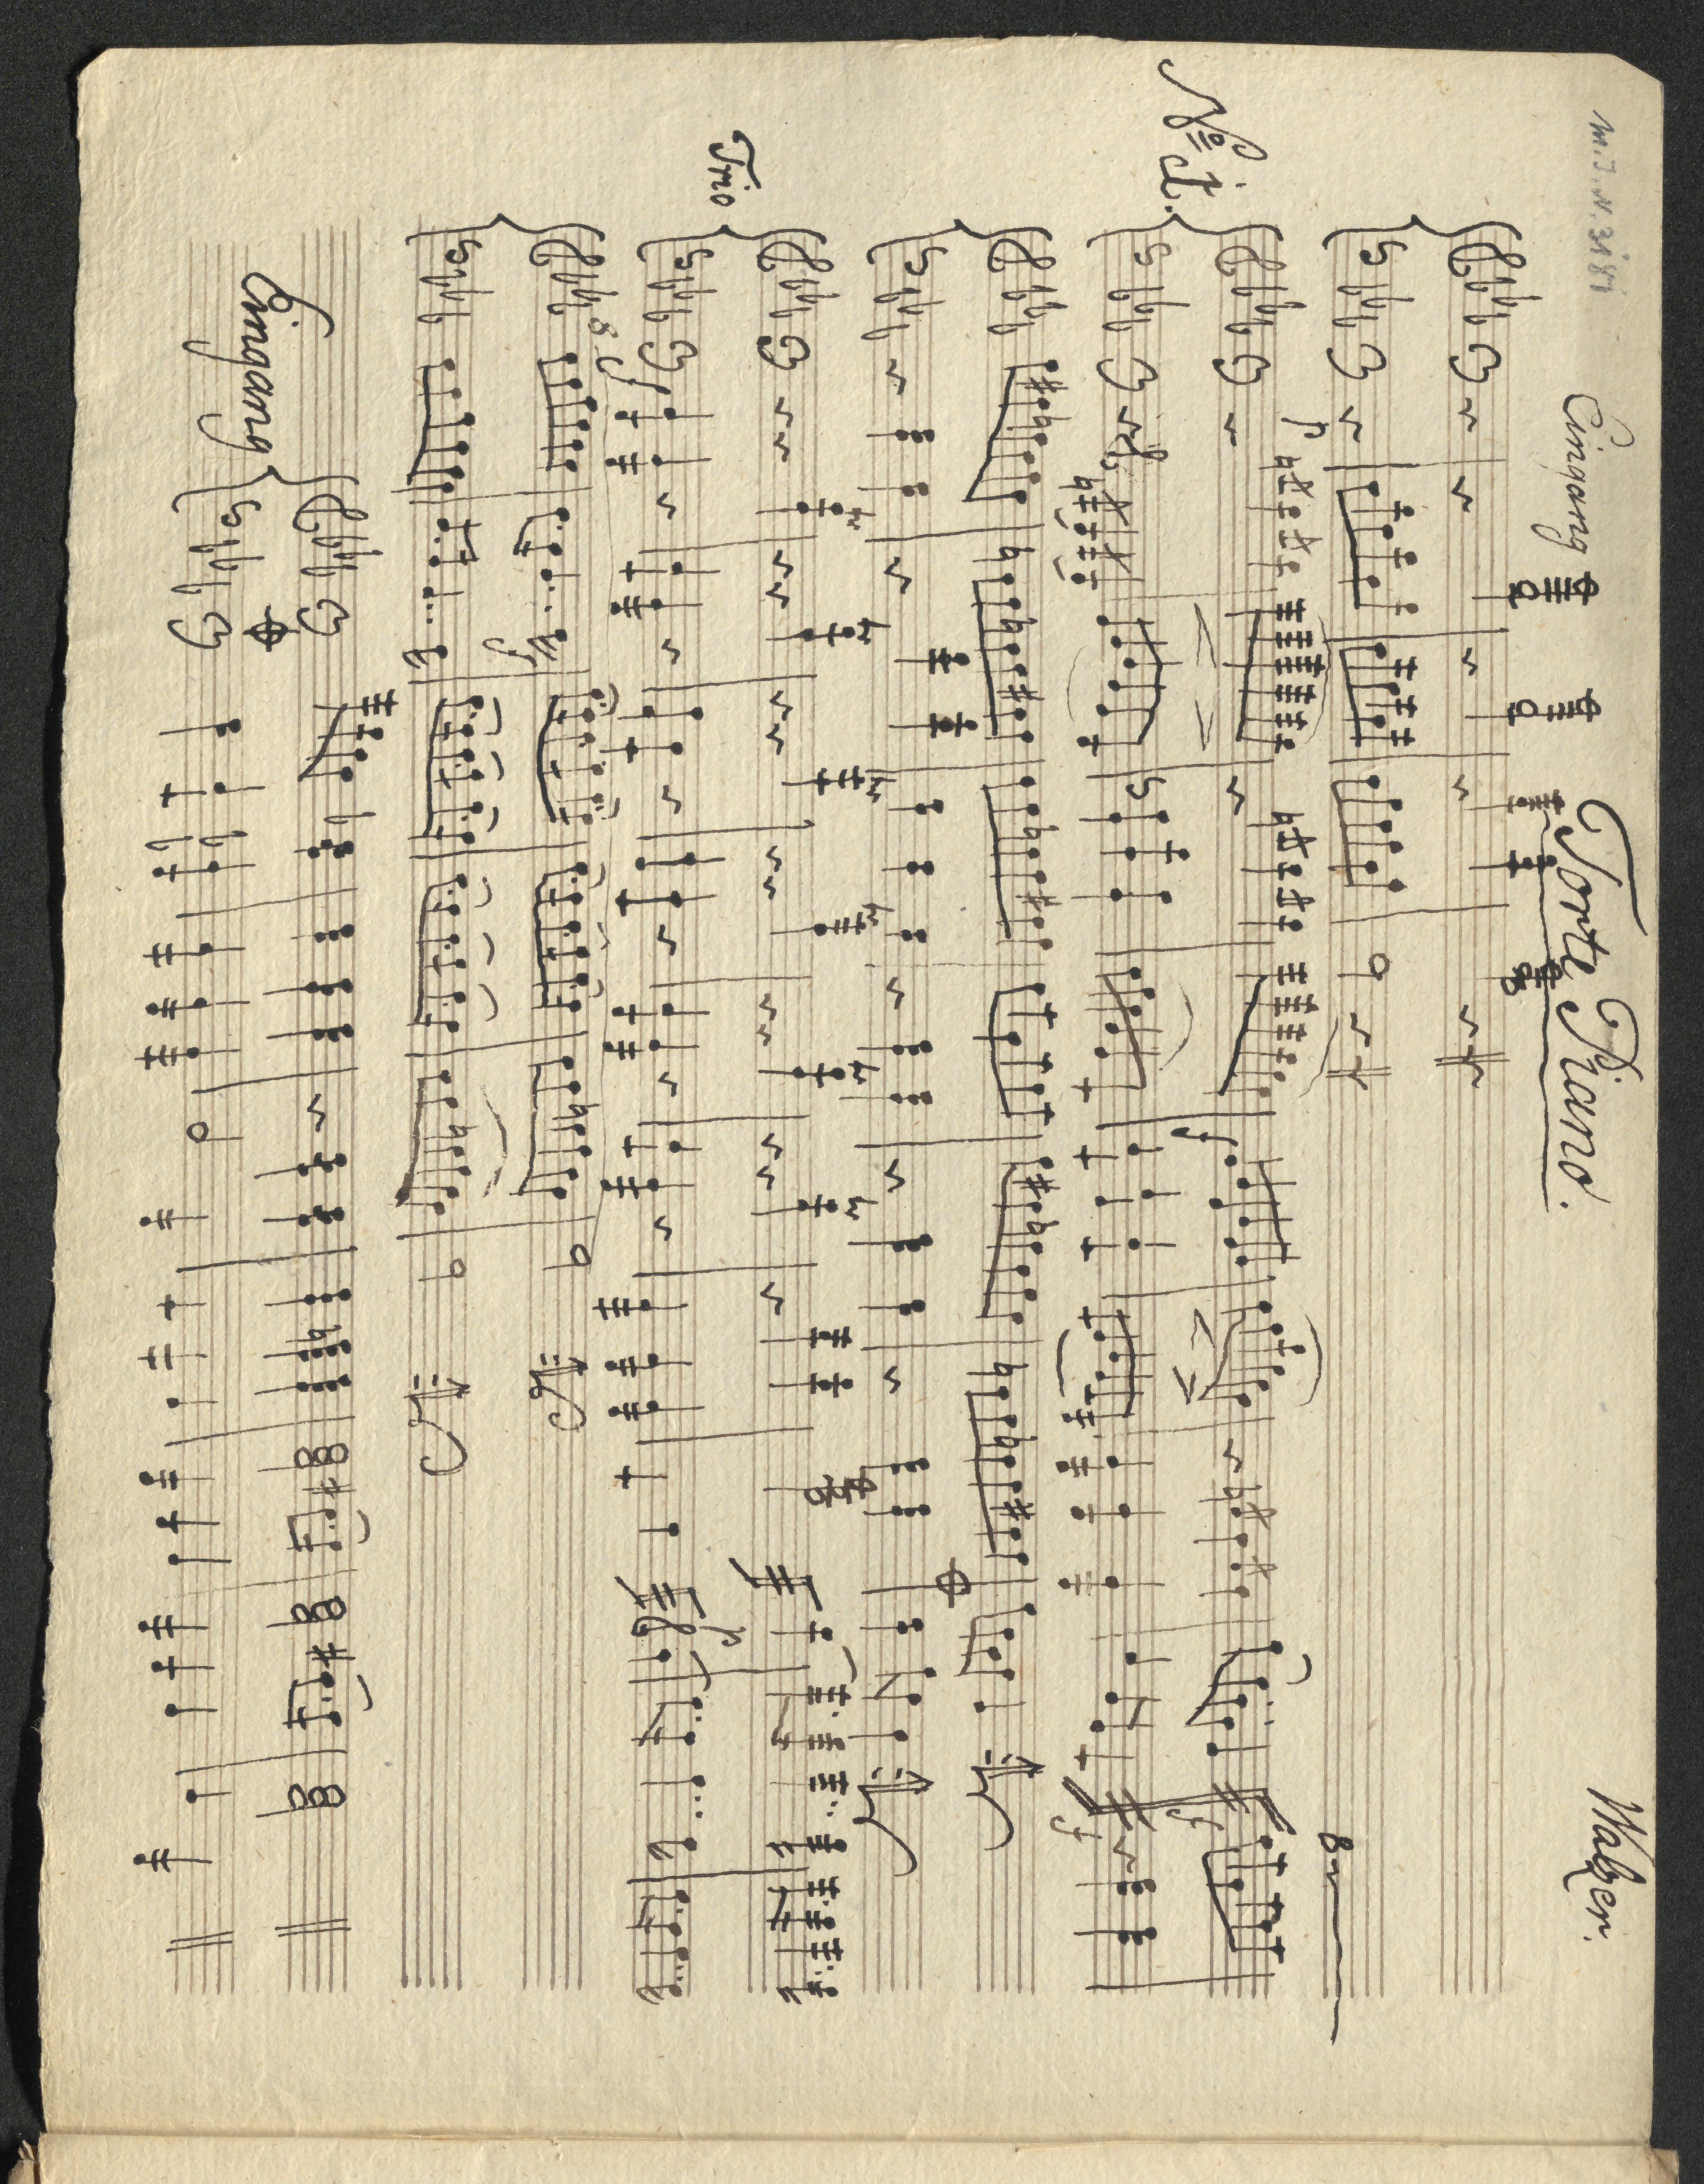 Eingang Forte Piano. Walzer.
No 1.
Trio
Eingang